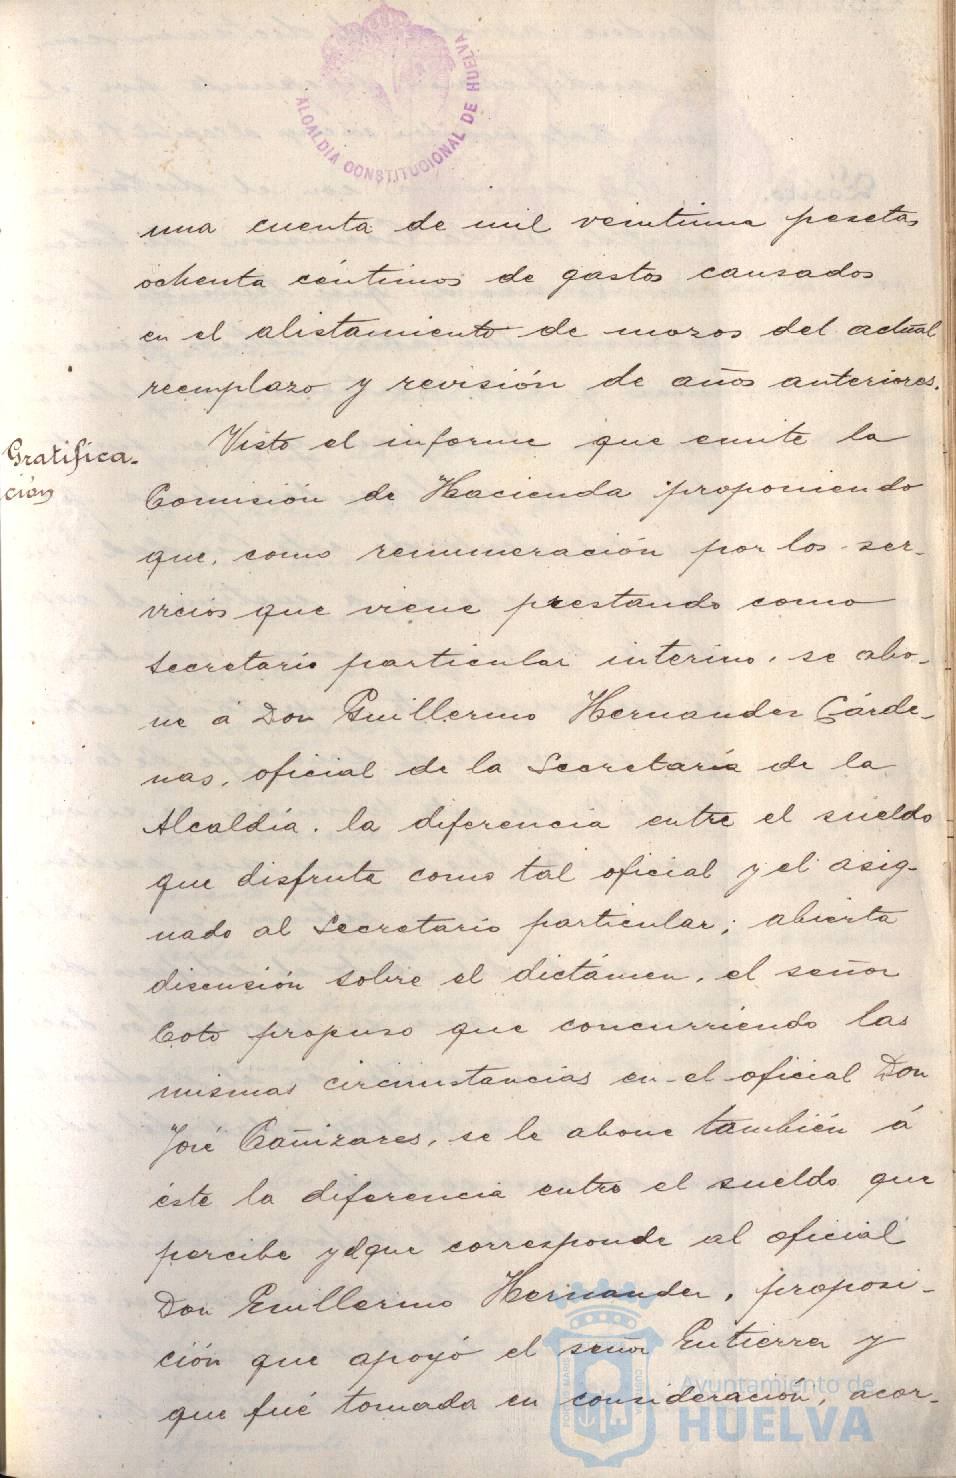 ALCALDIA CONSTITUCIONAL DE HUELVA
una cuenta de mil veintiuna pesetas
ochenta céntimos de gastos causados
en el alistamiento de mozos del actual
reemplazo y revisión de años anteriores.
Gratifica-
ción
Visto el informe que emite la
Comisión de Hacienda proponiendo
que, como remuneración por los ser-
vicios que viene prestando como
Secretario particular interino, se abo-
ne á Don Guillermo Hernandez Cárde-
nas, oficial de la Secretaría de la
Alcaldía, la diferencia entre el sueldo
que disfruta como tal oficial y el asig-
nado al Secretario particular; abierta
discusión sobre el dictámen, el señor
Coto propuso que concurriendo las
mismas circunstancias en el oficial Don
José Cañizares, se le abone también á
éste la diferencia entre el sueldo que
percibe y el que corresponde al oficial
Don Guillermo Hernandez, proposi-
ción que apoyó el señor Gutierrez y
que fué tomada en consideración, acor-
Ayuntamiento de
HUELVA